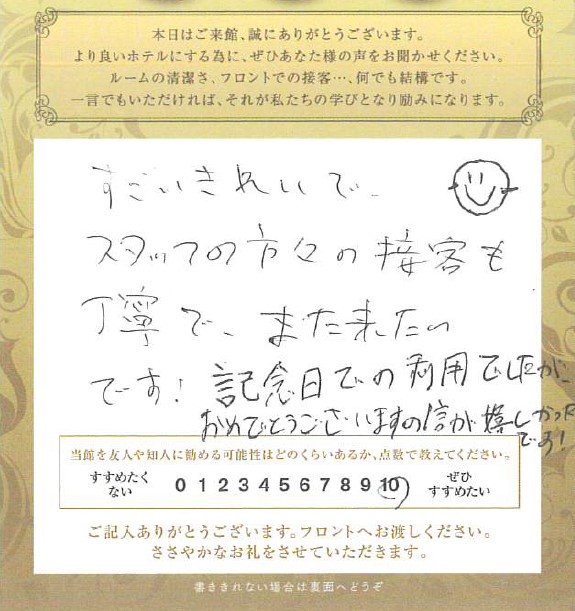 本日はご来館、誠にありがとうございます。
より良いホテルにする為に、ぜひあなた様の声をお聞かせください。
ルームの清潔さ、フロントでの接客…、何でも結構です。
一言でもいただければ、それが私たちの学びとなり励みになります。
すごいきれいで、
スタッフの方々の接客も
丁寧で、また来たい
です！記念日での利用でしたが、
おめでとうございますの信が嬉しかった
です！
当館を友人や知人に勧める可能性はどのくらいあるか、点数で教えてください。
すすめたくない 0 1 2 3 4 5 6 7 8 9 10 ぜひすすめたい
ご記入ありがとうございます。フロントへお渡しください。
ささやかなお礼をさせていただきます。
書ききれない場合は裏面へどうぞ